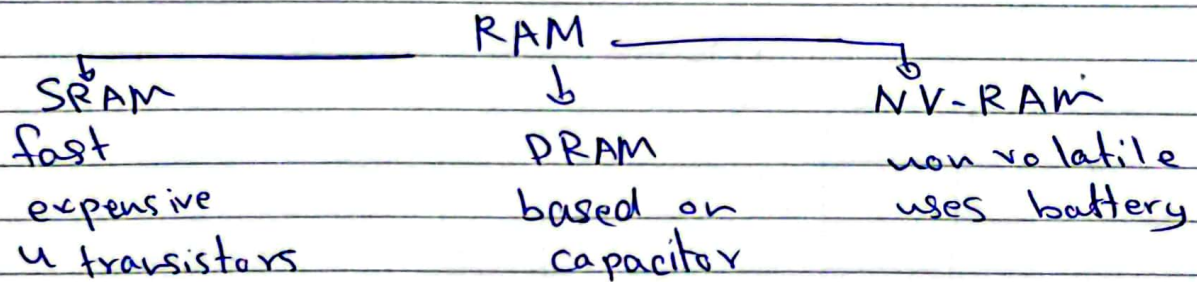 RAM
SRAM
fast
expensive
4 transistors
DRAM
based on
capacitor
NV-RAM
non volatile
uses battery